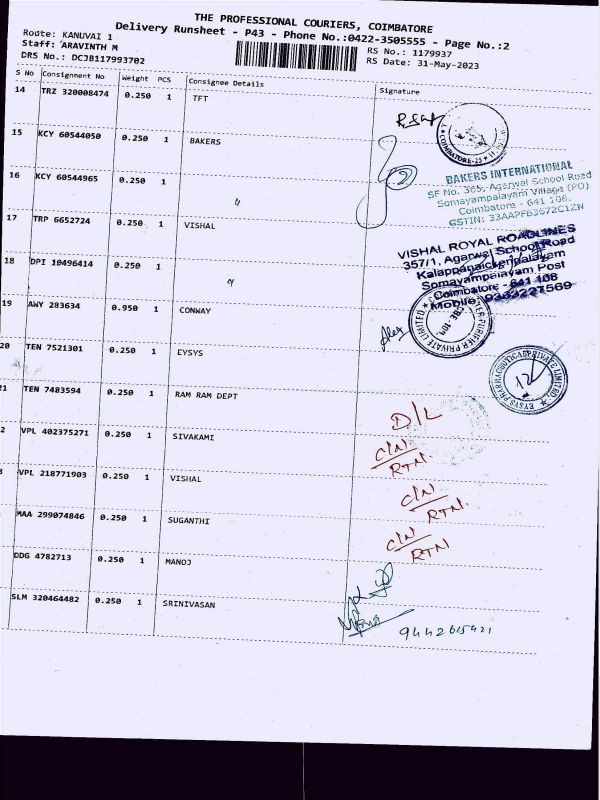 THE PROFESSIONAL COURIERS, COIMBATORE
Delivery Runsheet - P43 - Phone No.:0422-3505555 - Page No.:2
Route: KANUVAI 1
Staff: ARAVINTH M
DRS No.: DCJB117993702
RS No.: 1179937
RS Date: 31-May-2023
S No Consignment No Weight PCS Consignee Details Signature
14 TRZ 320008474 0.250 1 TFT
COIMBATORE-25
15 KCY 60544050 0.250 1 BAKERS
16 KCY 60544965 0.250 1 "
BAKERS INTERNATIONAL
SF No. 365, Agarwal School Road
Somayampalayam Village (PO)
Coimbatore - 641 108.
GSTIN: 33AAPFB3672C1ZN
17 TRP 6652724 0.250 1 VISHAL
VISHAL ROYAL ROADLINES
357/1, Agarwal School Road
Kalappanaickenpalayam
Somayampalayam Post
Coimbatore - 641 108
Mobile: 9363227569
18 DPI 10496414 0.250 1 "
19 AWY 283634 0.950 1 CONWAY
20 TEN 7521301 0.250 1 EYSYS
EYSYS PHARMACEUTICAL PRIVATE LIMITED
12
21 TEN 7483594 0.250 1 RAM RAM DEPT
D/L
2 VPL 402375271 0.250 1 SIVAKAMI
C/N
RTN
VPL 218771903 0.250 1 VISHAL
C/N
RTN
MAA 299074846 0.250 1 SUGANTHI
C/N
RTN
DDG 4782713 0.250 1 MANOJ
SLM 320464482 0.250 1 SRINIVASAN
9442615421